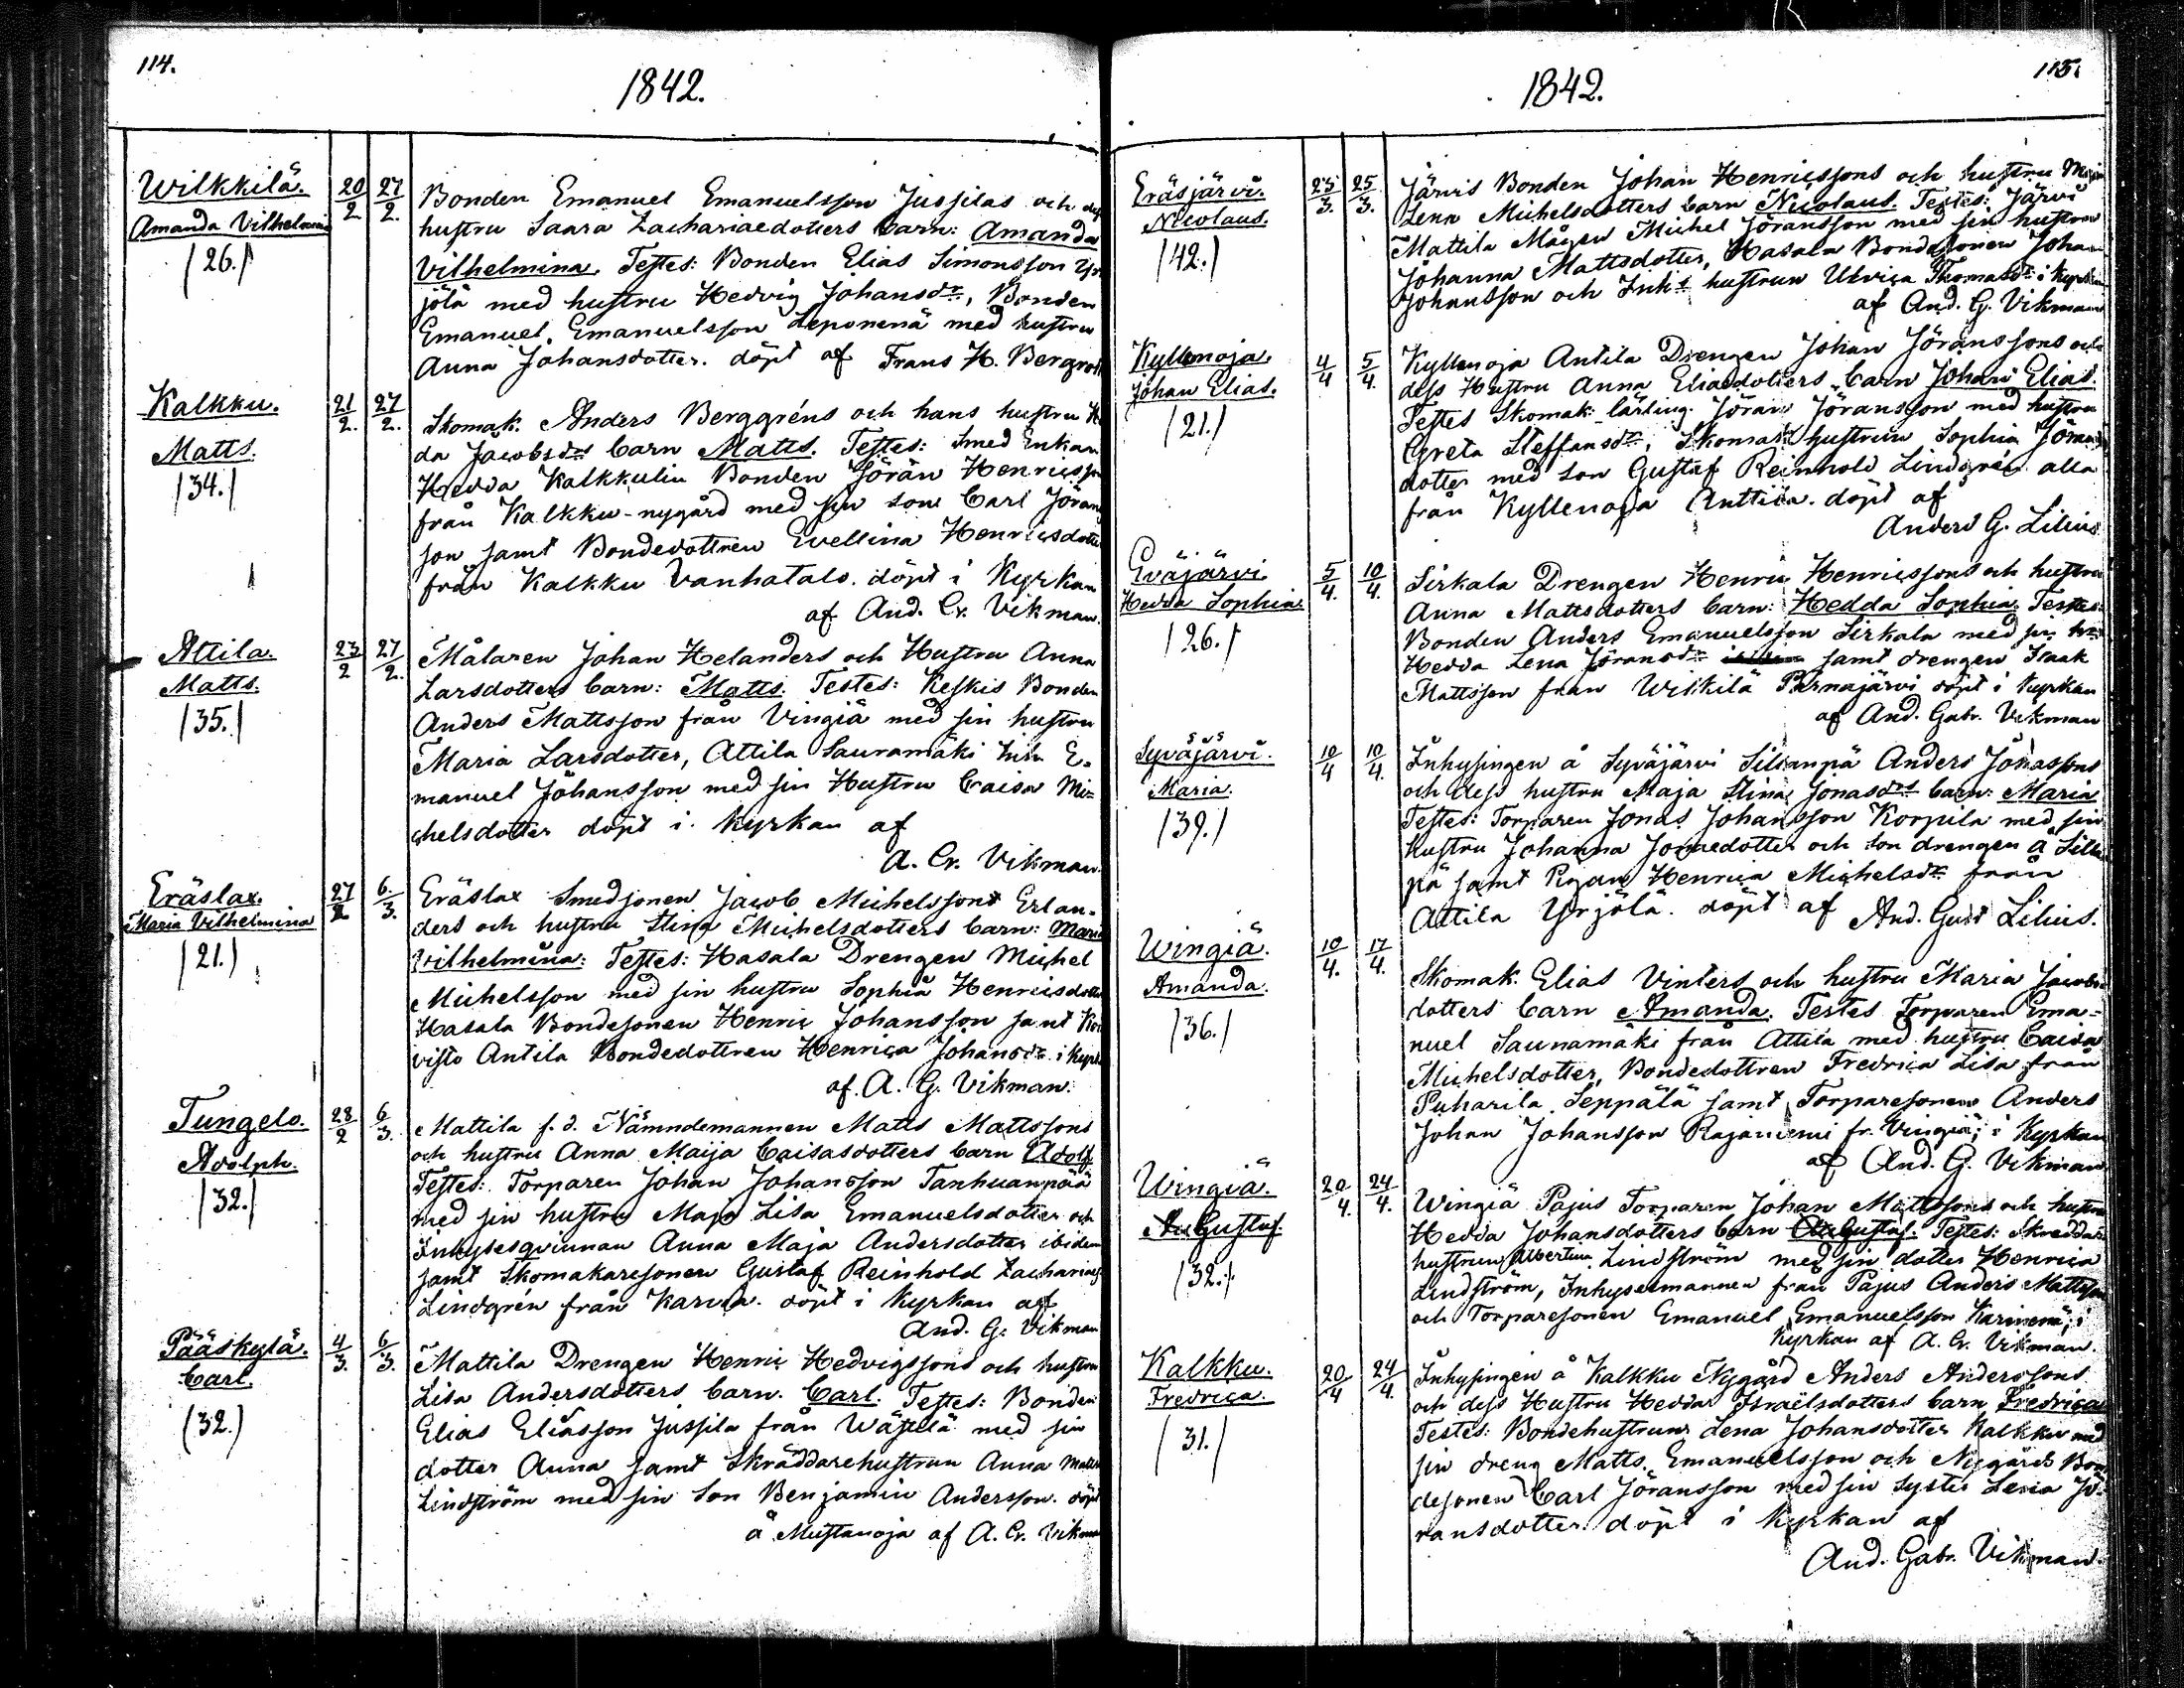 114.
1842.
Wilkkilä.
Amanda Vilhelmina
/26./
20/2 27/2.
Bonden Emanuel Emanuelsson Jussilas och dess
hustru Saara Zachariaedotters barn: Amanda
Vilhelmina. Testes: Bonden Elias Simonsson Yr-
jölä med hustru Hedvig Johansdr, Bonden
Emanuel Emanuelsson Leponenä med hustru
Anna Johansdotter. döpt af Frans H. Bergroth
Kalkku.
Matts.
/34./
21/2. 27/2.
Skomak. Anders Berggréns och hans hustru He
da Jacobsdrs barn Matts. Testes: Smed Enkan
Hedda Kalkkulin Bonden Jöran Henricsson
från Kalkku-nygård med sin son Carl Jörans
son samt Bondedottren Evellina Henricsdotter
från Kalkku Vanhatalo. döpt i Kyrkan
af And. Gr. Vikman.
Attila.
Matts.
/35./
23/2 27/2.
Målaren Johan Helanders och Hustru Anna
Larsdotters barn: Matts. Testes: Keskis Bonden
Anders Mattsson från Vingiä med sin hustru
Maria Larsdotter, Attila Saunamäki Inh. E-
manuel Johansson med sin Hustru Caisa Mi-
chelsdotter döpt i Kyrkan af
A. Gr. Vikman.
Eräslax.
Maria Vilhelmina
/21./
27/2 6/3.
Eräslax Smedsonen Jacob Michelssons Erlan-
ders och hustru Stina Michelsdotters barn: Maria
Vilhelmina: Testes: Hasala Drengen Michel
Michelsson med sin hustru Sophia Henricsdotter
Hasala Bondesonen Henric Johansson samt Koi
visto Antila Bondedottren Henrica Johansdr. i Kyrk
af A. G. Vikman.
Tungelo.
Adolph.
/32./
28/2 6/3.
Mattila f. d. Nämndemannen Matts Mattssons
och hustru Anna Maija Caisasdotters barn Adolf
Testes: Torparen Johan Johansson Tanhuanpää
med sin hustru Maja Lisa Emanuelsdotter och
Inhysesqvinnan Anna Maja Andersdotter ibidem
samt Skomakaresonen Gustaf Reinhold Zachariaes
Lindgrén från Karcia. döpt i Kyrkan af
And. G. Vikman
Pääskylä.
Carl.
(32.)
4/3. 6/3.
Mattila Drengen Henric Hedvigssons och hustru
Lisa Andersdotters barn. Carl. Testes: Bonden
Elias Eliasson Jussila från Wäjelä med sin
dotter Anna samt Skräddarehustrun Anna Matts
Lindström med sin Son Benjamin Andersson. döpt
å Mustanoja af A. Gr. Vikman
115.
1842.
Eräsjärvi.
Nicolaus.
/42./
23/3. 25/3.
Järvis Bonden Johan Henricssons och hustru Maja
Lena Michelsdotters barn Nicolaus. Testes: Järvi
Mattila Mågen Michel Jöransson med sin hustru
Johanna Mattsdotter, Hasala Bondesonen Johan
Johansson och Inh:s hustrun Ulrica Thomasdr: i Kyrkan
af And. G. Vikman
Kyllenoja
Johan Elias.
/21./
4/4 5/4.
Kyllenoja Antila Drengen Johan Jöranssons och
dess Hustru Anna Eliaedotters barn Johan Elias.
Testes Skomak: lärling. Jöran Jöransson med hustru
Greta Steffansdr, Skomak: hustrun Sophia Jörans
dotter med son Gustaf Reinhold Lindgrén alla
från Kyllenoja Anttila. döpt af
Anders G. Lilius
Eväjärvi
Hedda Sophia.
/26./
5/4. 10/4.
Sirkala Drengen Henric Henricssons och hustru
Anna Mattsdotters barn: Hedda Sophia. Testes:
Bonden Anders Emanuelsson Sirkala med sin hu
Hedda Lena Jöransdr samt drengen Isaak
Mattsson från Wilkilä Pärnajärvi döpt i Kyrkan
af And. Gabr. Vikman
Syväjärvi.
Maria.
/39./
10/4 10/4.
Inhysingen å Syväjärvi Silianpä Anders Jonassons
och dess hustru Maja Stina Jonasdrs barn: Maria
Testes: Torparen Jonas Johansson Korpila med sin
hustru Johanna Jonaedotter och son drengen å Silla
pä samt Pigan Henrica Michelsdr från
Attila Yrjölä. döpt af And. Gust Lilius.
Wingiä.
Amanda.
/36./
10/4. 17/4.
Skomak. Elias Vinters och hustru Maria Jacobs
dotters barn Amanda. Testes Torparen Ema-
nuel Saunamäki från Attila med hustru Caisa
Michelsdotter, Bondedottren Fredrica Lisa från
Puharila Seppälä samt Torparesonen Anders
Johan Johansson Rajaniemi fr. Vingiä; i Kyrkan
af And. G. Vikman
Wingiä.
Gustaf
/32./
20/4. 24/4.
Wingiä Pajus Torparen Johan Mattssons och hustru
Hedda Johansdotters barn Gustaf. Testes: Skreddar
hustrun Albertina Lindström med sin dotter Henrica
Lindström, Inhysesmannen från Pajus Anders Mattsson
och Torparesonen Emanuel Emanuelsson Karinenä, i
Kyrkan af A. Gr. Vikman.
Kalkku.
Fredrica.
/31./
20/4 24/4
Inhysingen å Kalkku Nygård Anders Anderssons
och dess Hustru Hedda Israëlsdotters barn Fredrica
Testes: Bondehustrun Lena Johansdotter Kalkku med
sin dreng Matts Emanuelsson och Nygårds Bon
desonen Carl Jöransson med sin Syster Lena Jö-
ransdotter döpt i Kyrkan af
And. Gabr. Vikman.